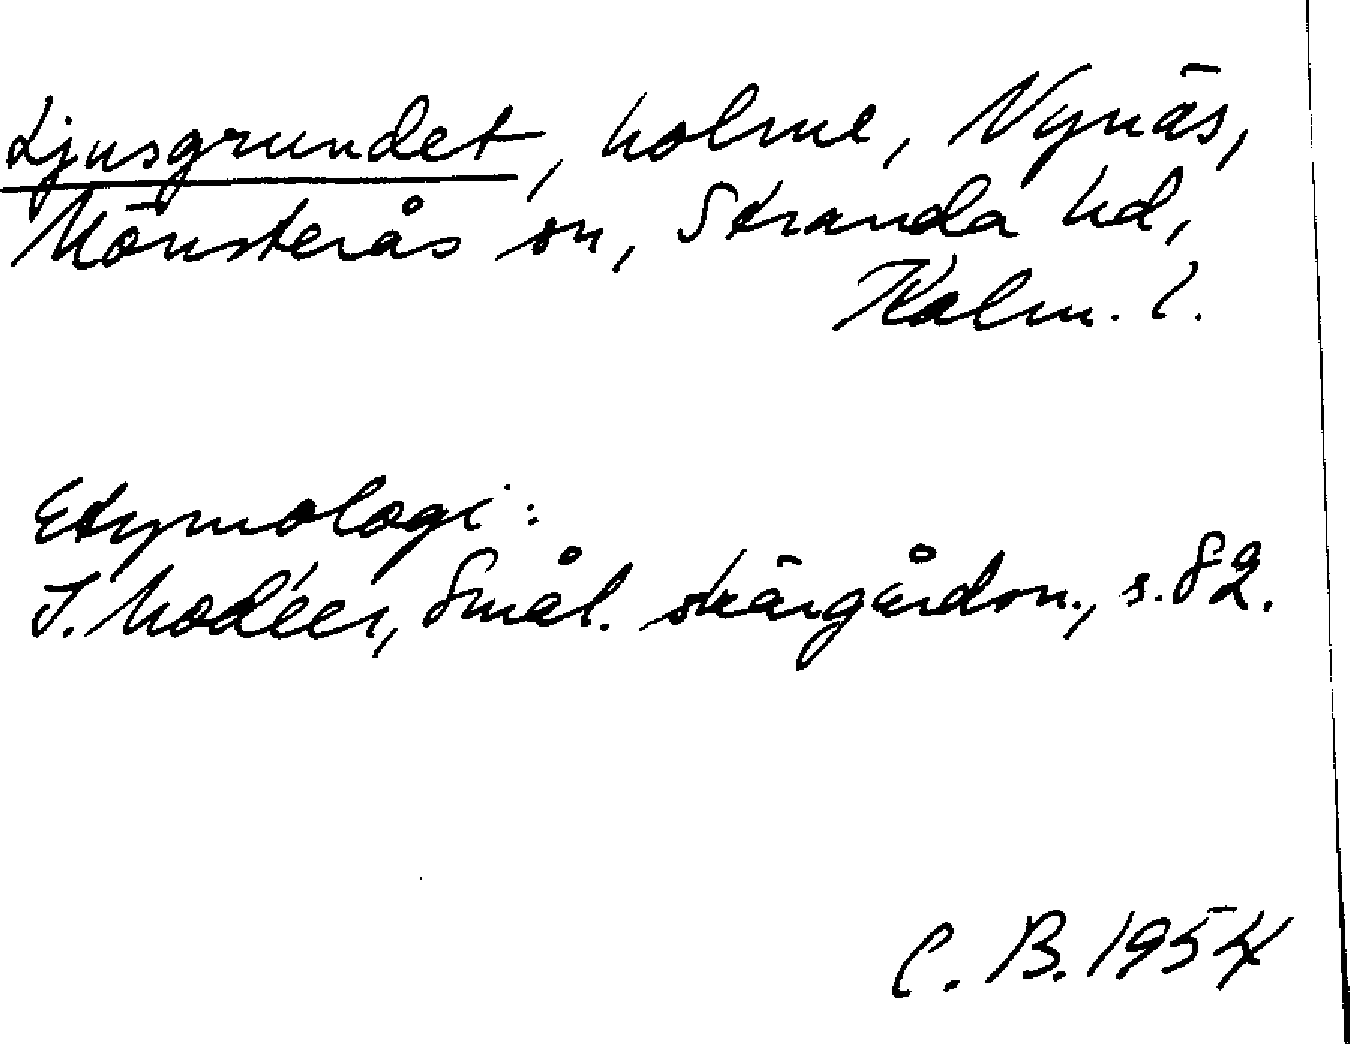 Ljusgrundet, holme, Nynäs,
Mönsterås sn, Stranda hd,
Kalm. l.
Etymologi:
I. Modéer, Smål. skärgårdsn., s. 82.
C. B. 1954